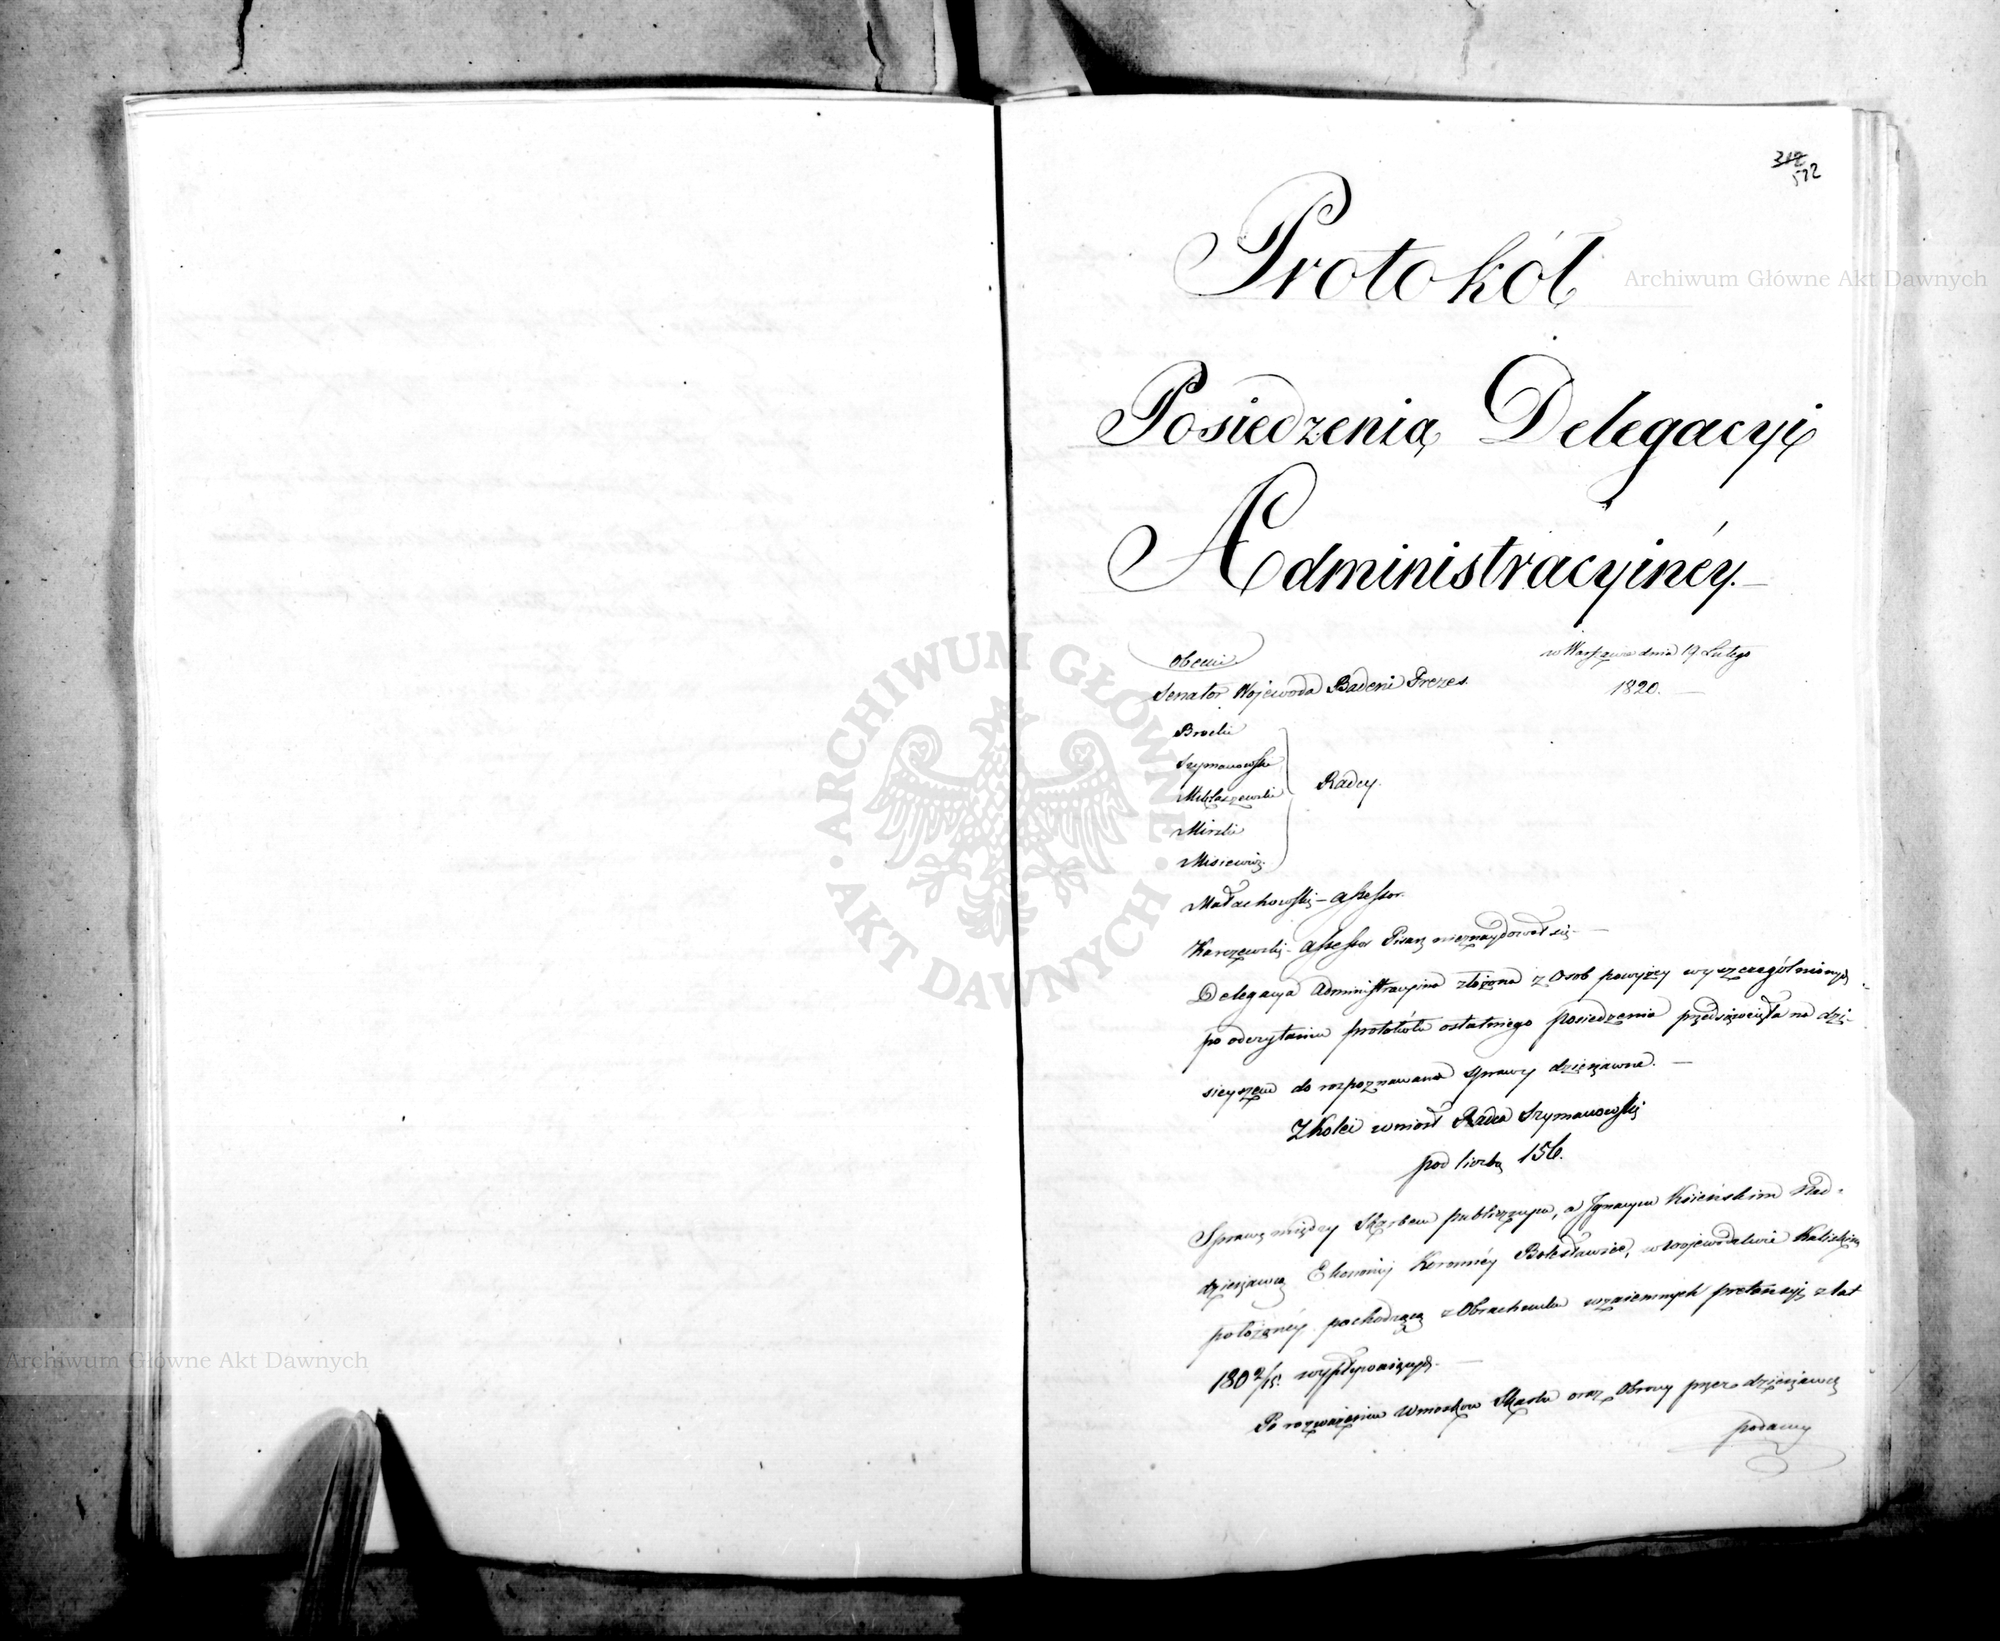 312
572
Protokół
Posiedzenia Delegacyi
Administracyinéy.
w Warszawie dnia 19 Lutego
1820.
Obecni
Senator Wojewoda Badeni Prezes.
Brocki
Szymanowski
Miklaszewski
Mirski
Misiewicz
Radcy.
Małachowski – Assessor.
Karczewski – Assessor Pisarz nieznaydował się. –
Delegacya Administracyina złożona z Osob powyżey wyszczególnionych
po odczytaniu protokółu ostatniego posiedzenia przedsięwzięła na dzi-
sieyszem do rozpoznawania sprawy dzierżawne. –
Z kolei wniosł Radca Szymanowski
pod liczbą 156.
Sprawę między Skarbem publicznym, a Ignacym Kosieńskim Nad-
dzierżawcą Ekonomij Koronnéy Bolesławiec, w Wojewodztwie Kaliskim
położonéy pochodzącą z Obrachunku wzajemnych pretensyi z lat
180 9/15. wypływaiących. –
Po rozważeniu Wniosków Skarbu oraz Obrony przez dzierżawcę
podaney
Archiwum Główne Akt Dawnych
Archiwum Główne Akt Dawnych
ARCHIWUM GŁÓWNE AKT DAWNYCH